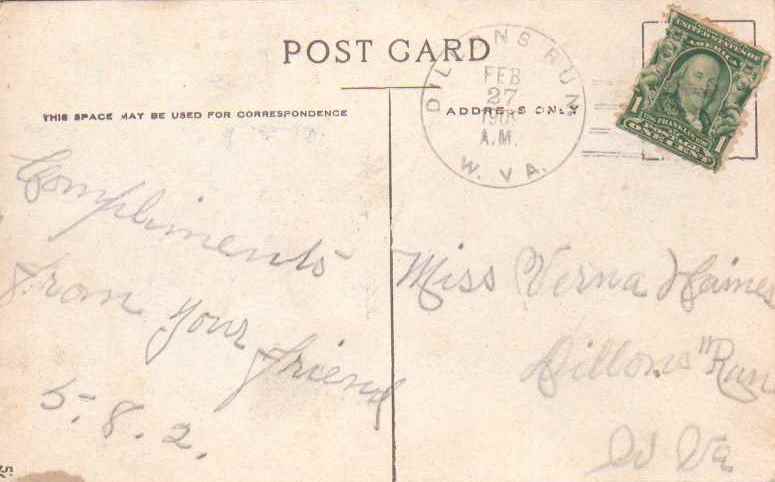 POST CARD
THIS SPACE MAY BE USED FOR CORRESPONDENCE
ADDRESS ONLY
DILLONS RUN
FEB
27
A.M.
W. VA.
UNITED STATES OF
AMERICA
1 1
FRANKLIN
POSTAGE
ONE CENT
Compliments
from your
friend
5.8.2.
Miss Verna Haines
Dillons "Run
W Va.